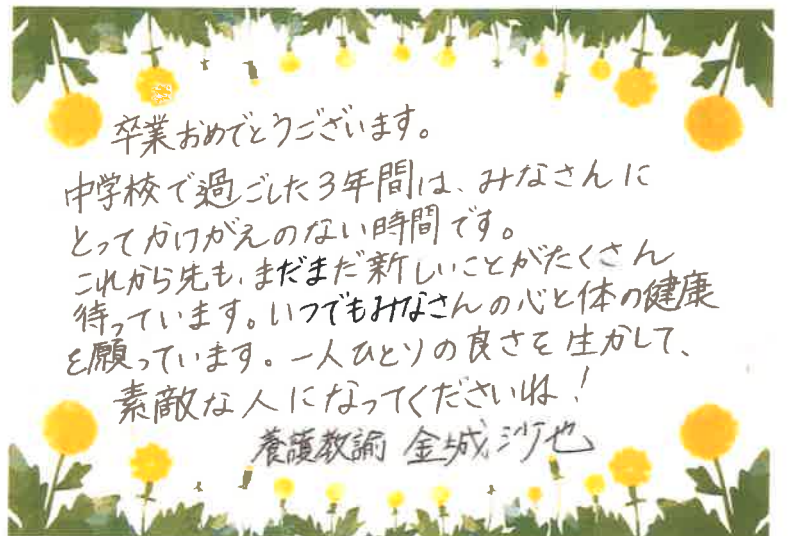 卒業おめでとうございます。
中学校で過ごした3年間は、みなさんに
とってかけがえのない時間です。
これから先も、まだまだ新しいことがたくさん
待っています。いつでもみなさんの心と体の健康
を願っています。一人ひとりの良さを生かして、
素敵な人になってくださいね!
養護教諭 金城 沙也